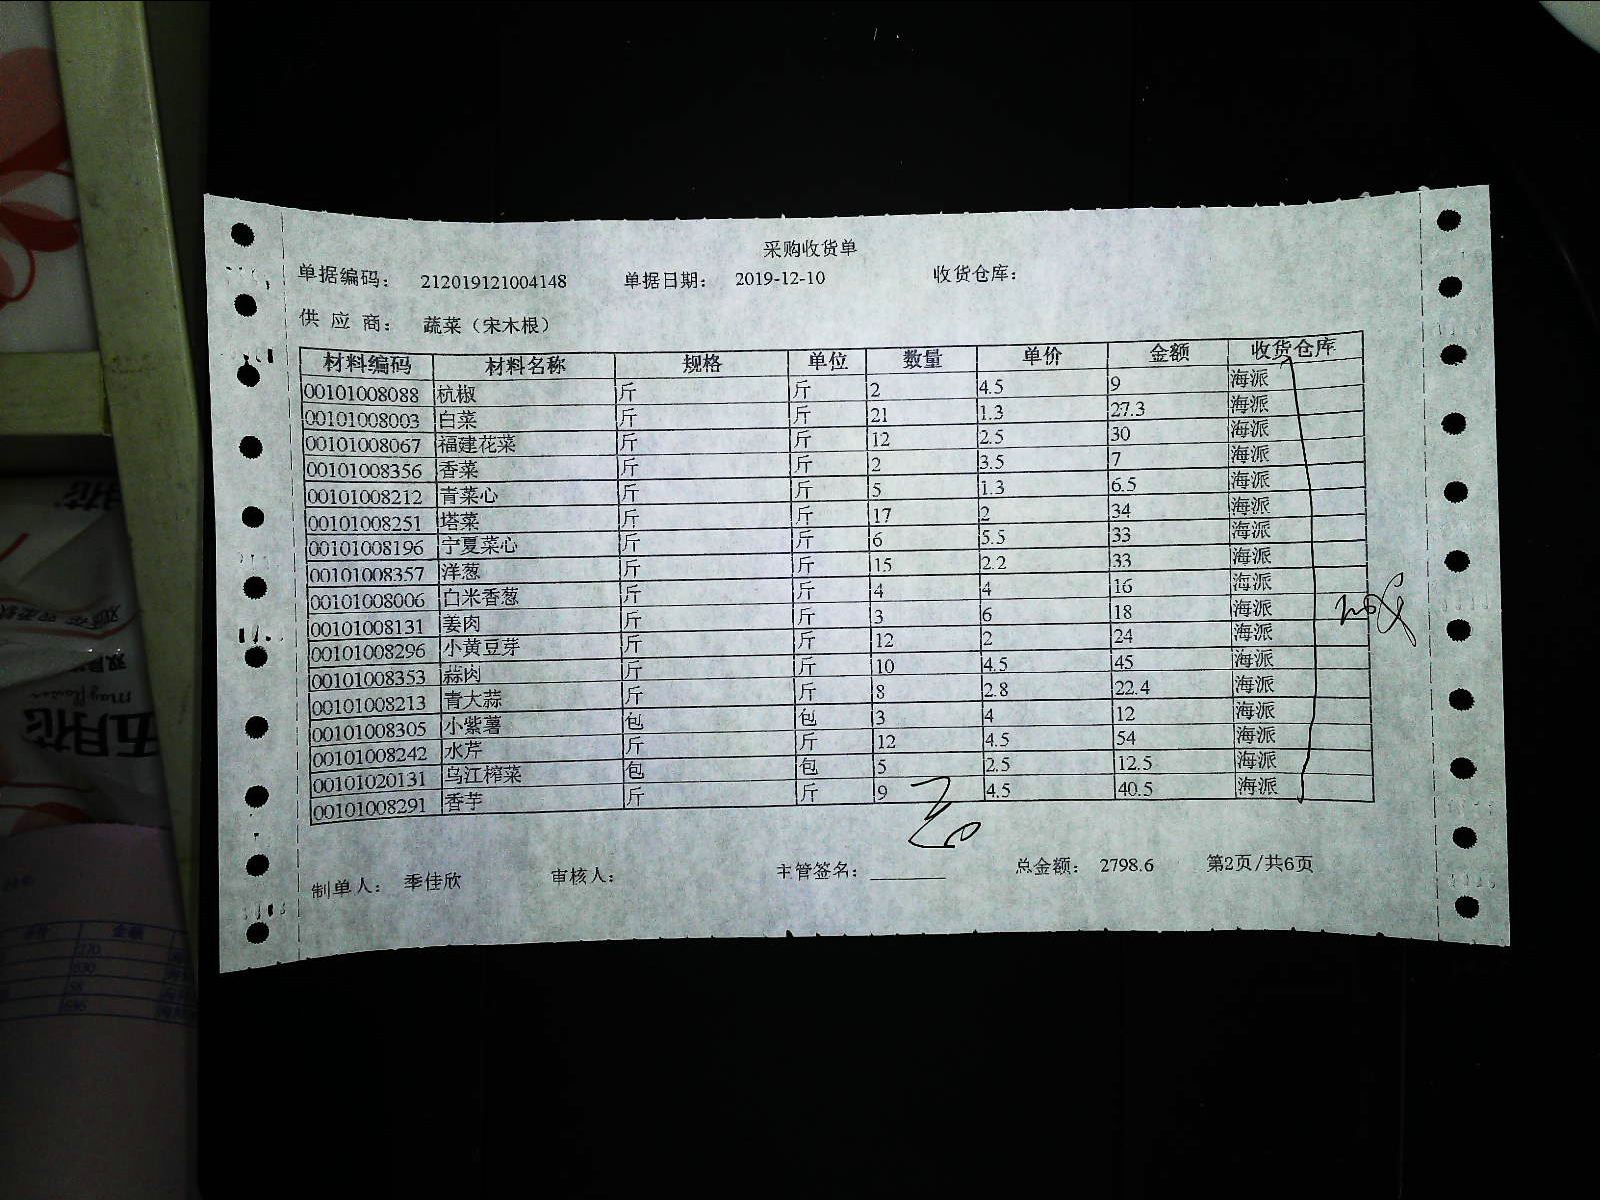 采购收货单
单据编码： 212019121004148 单据日期： 2019-12-10 收货仓库：
供 应 商： 蔬菜（宋木根）
材料编码 材料名称 规格 单位 数量 单价 金额 收货仓库
00101008088 杭椒 斤 斤 2 4.5 9 海派
00101008003 白菜 斤 斤 21 1.3 27.3 海派
00101008067 福建花菜 斤 斤 12 2.5 30 海派
00101008356 香菜 斤 斤 2 3.5 7 海派
00101008212 青菜心 斤 斤 5 1.3 6.5 海派
00101008251 塔菜 斤 斤 17 2 34 海派
00101008196 宁夏菜心 斤 斤 6 5.5 33 海派
00101008357 洋葱 斤 斤 15 2.2 33 海派
00101008006 白米香葱 斤 斤 4 4 16 海派
00101008131 姜肉 斤 斤 3 6 18 海派
00101008296 小黄豆芽 斤 斤 12 2 24 海派
00101008353 蒜肉 斤 斤 10 4.5 45 海派
00101008213 青大蒜 斤 斤 8 2.8 22.4 海派
00101008305 小紫薯 包 包 3 4 12 海派
00101008242 水芹 斤 斤 12 4.5 54 海派
00101020131 乌江榨菜 包 包 5 2.5 12.5 海派
00101008291 香芋 斤 斤 9 4.5 40.5 海派
制单人： 季佳欣 审核人： 主管签名： 总金额： 2798.6 第2页/共6页
五月花
may flower
金额
270